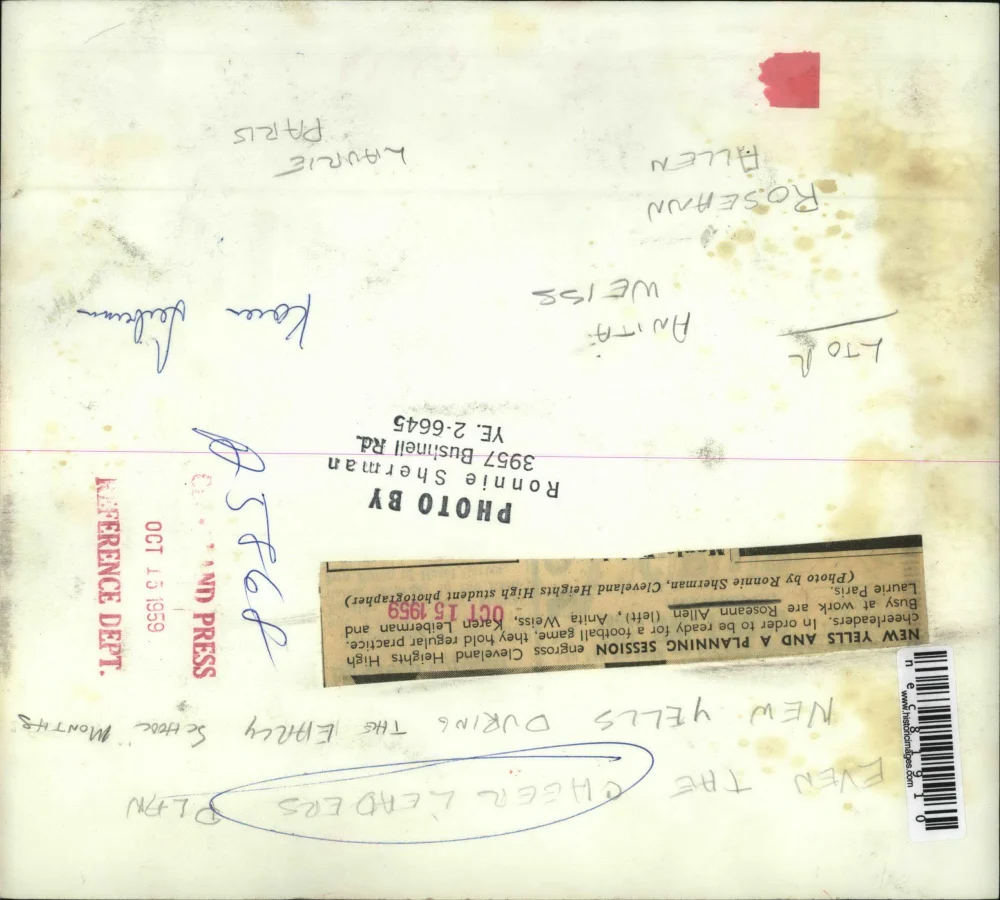 EVEN THE CHEER LEADERS PLAN
NEW YELLS DURING THE EARLY SCHOOL MONTHS
NEW YELLS AND A PLANNING SESSION engross Cleveland Heights High
cheerleaders. In order to be ready for a football game, they hold regular practice.
Busy at work are Roseann Allen (left), Anita Weiss, Karen Leiberman and
Laurie Paris.
(Photo by Ronnie Sherman, Cleveland Heights High student photographer)
OCT 15 1959
PHOTO BY
Ronnie Sherman
3957 Bushnell Rd.
YE. 2-6645
L TO R
ANITA
WEISS
Karen
ROSEANN
ALLEN
LAURIE
PARIS
ND PRESS
OCT 15 1959
REFERENCE DEPT.
www.historicimages.com
nec81910